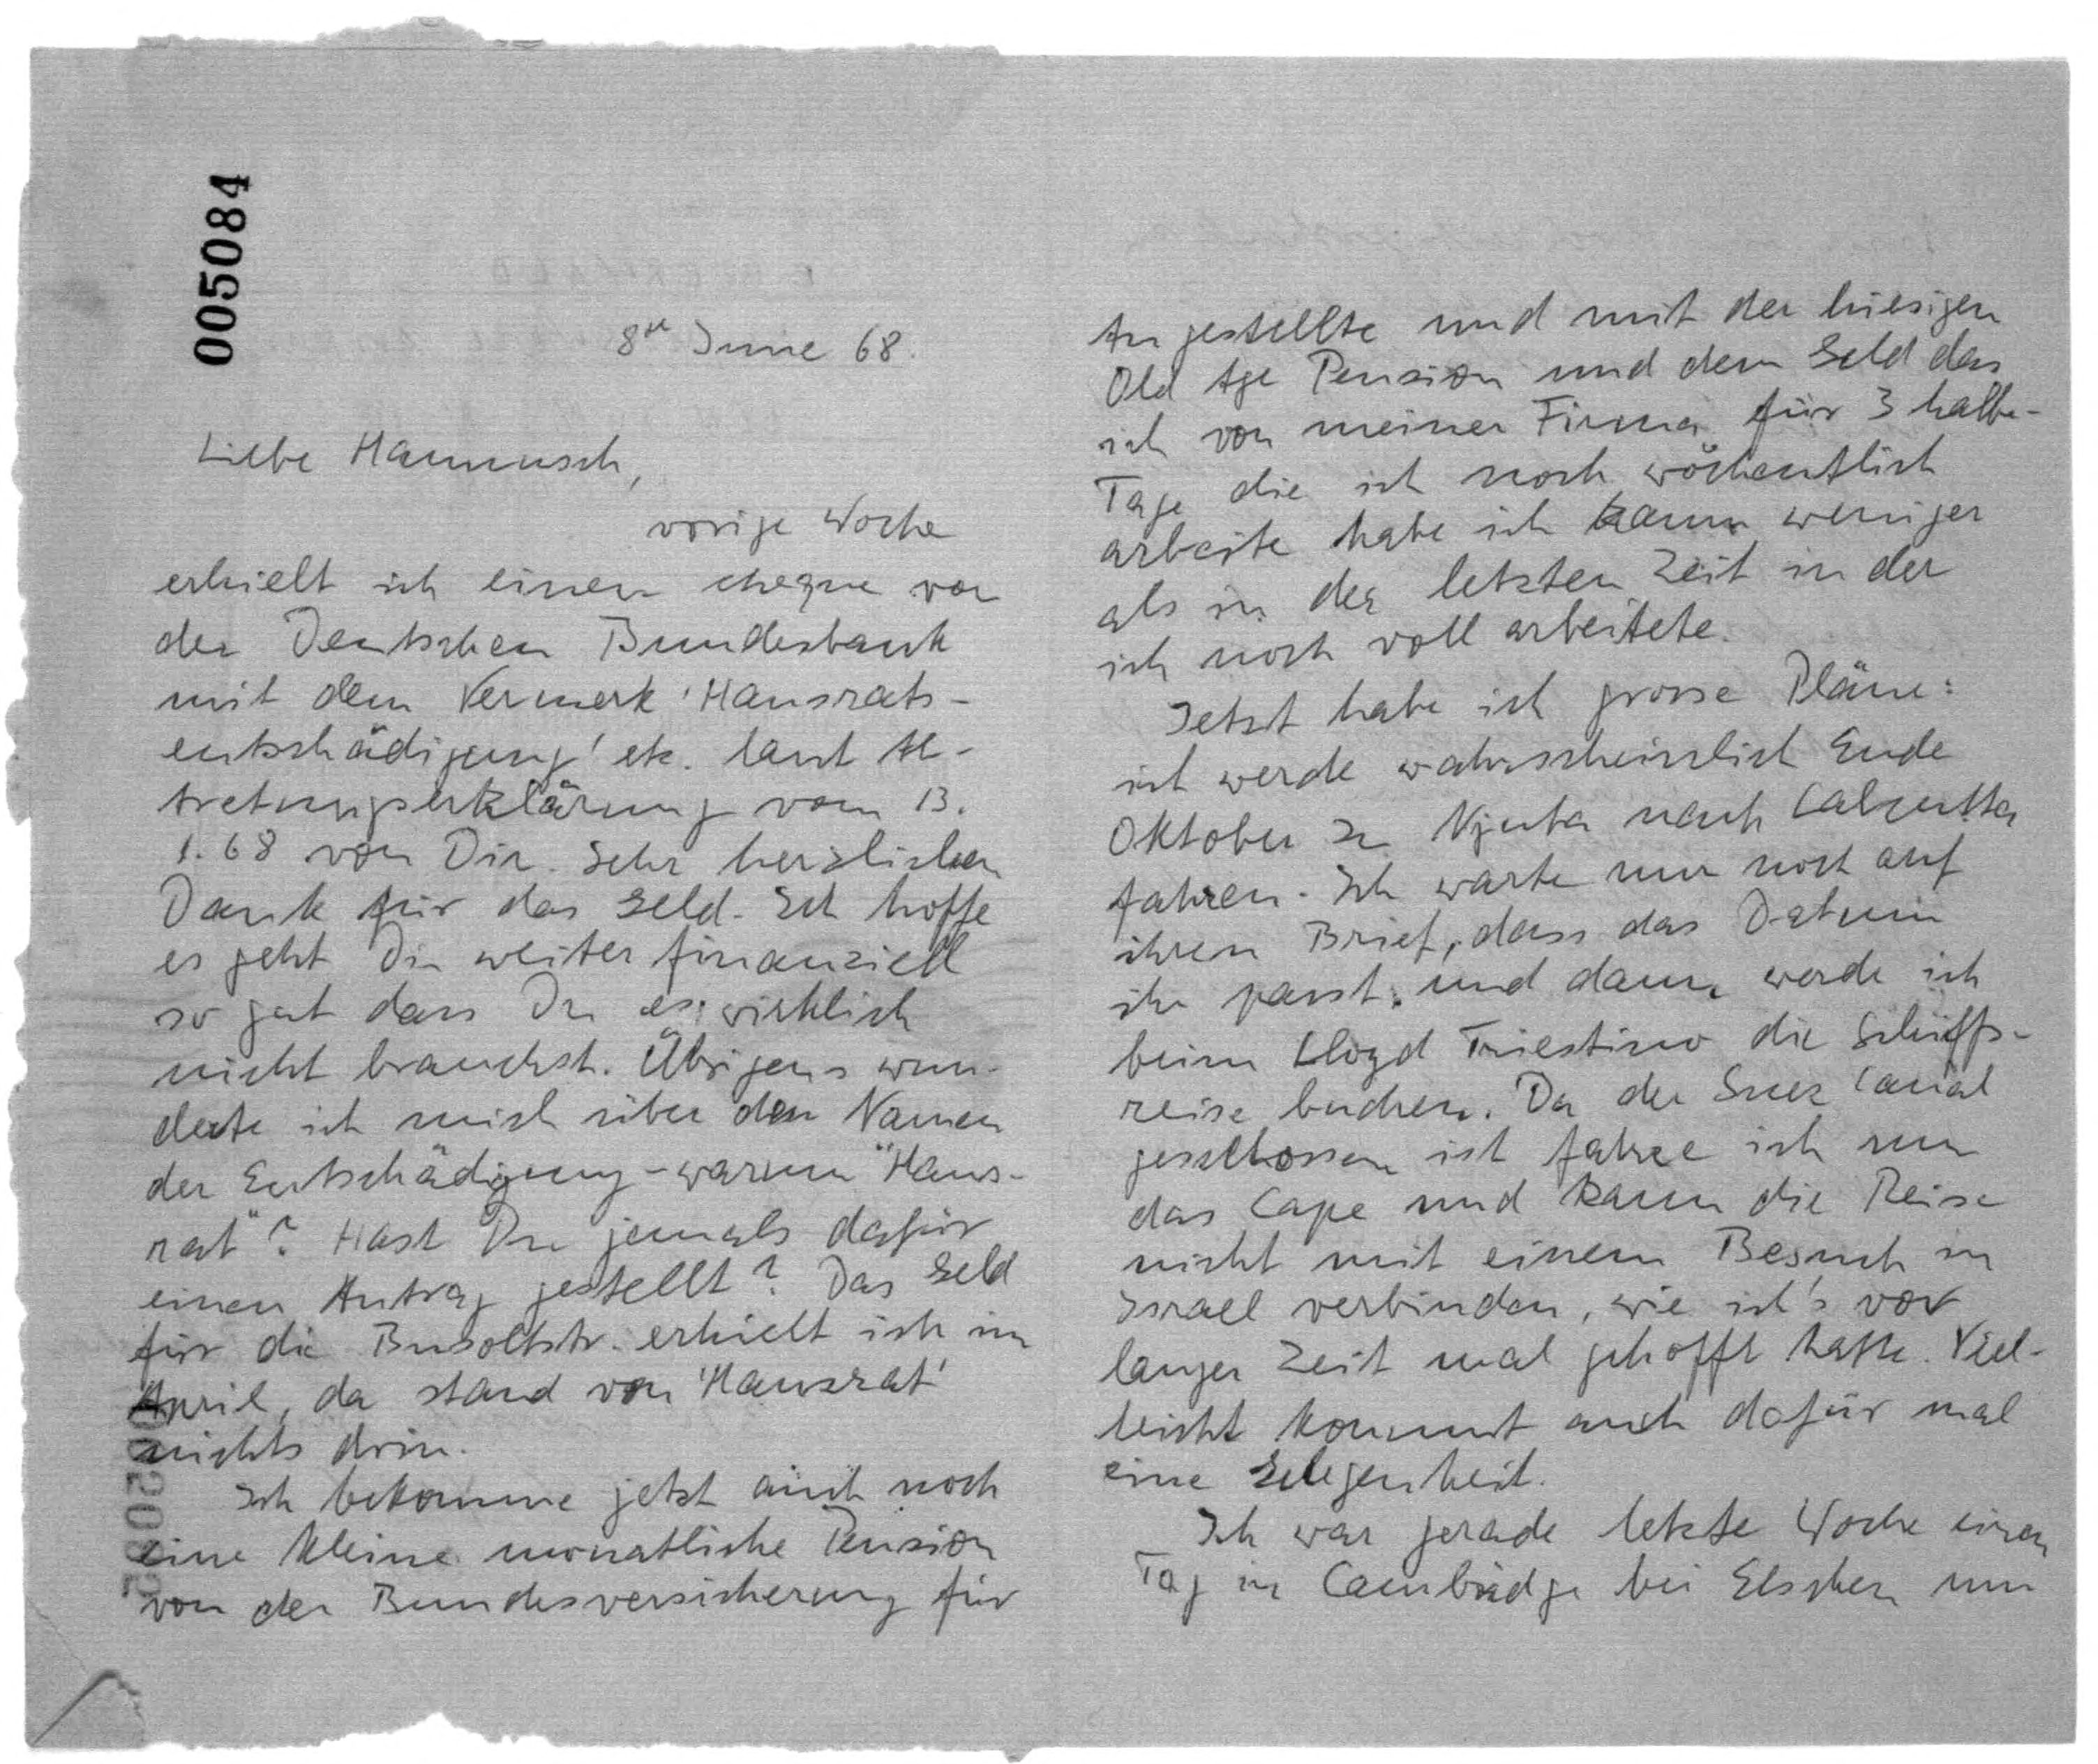 005084
8th June 68.
Liebe Hannusch,
vorige Woche
erhielt ich einen cheque von
der Deutschen Bundesbank
mit dem Vermerk 'Hausrats-
entschädigung' etc. laut Ab-
tretungserklärung vom 13.
1.68 von Dir. Sehr herzlichen
Dank für das Geld. Ich hoffe
es geht Dir weiter finanziell
so gut dass Du es wirklich
nicht brauchst. Übrigens wun-
derte ich mich über den Namen
der Entschädigung - warum "Haus-
rat"? Hast Du jemals dafür
einen Antrag gestellt? Das Geld
für die Busoltstr. erhielt ich im
April, da stand von 'Hausrat'
nichts drin.
Ich bekomme jetzt auch noch
eine kleine monatliche Pension
von der Bundesversicherung für
Angestellte und mit der hiesigen
Old Age Pension und dem Geld das
ich von meiner Firma für 3 halbe-
Tage die ich noch wöchentlich
arbeite habe ich kaum weniger
als in der letzten Zeit in der
ich noch voll arbeitete.
Jetzt habe ich grosse Pläne:
ich werde wahrscheinlich Ende
Oktober zu Njuta nach Calcutta
fahren. Ich warte nur noch auf
ihren Brief, dass das Datum
ihr passt. und dann werde ich
beim Lloyd Triestino die Schiffs-
reise buchen. Da der Suez Canal
geschlossen ist fahre ich um
das Cape und kann die Reise
nicht mit einem Besuch in
Israel verbinden, wie ich's vor
langer Zeit mal gehofft hatte. Viel-
leicht kommt auch dafür mal
eine Gelegenheit.
Ich war gerade letzte Woche einen
Tag in Cambridge bei Elschen um